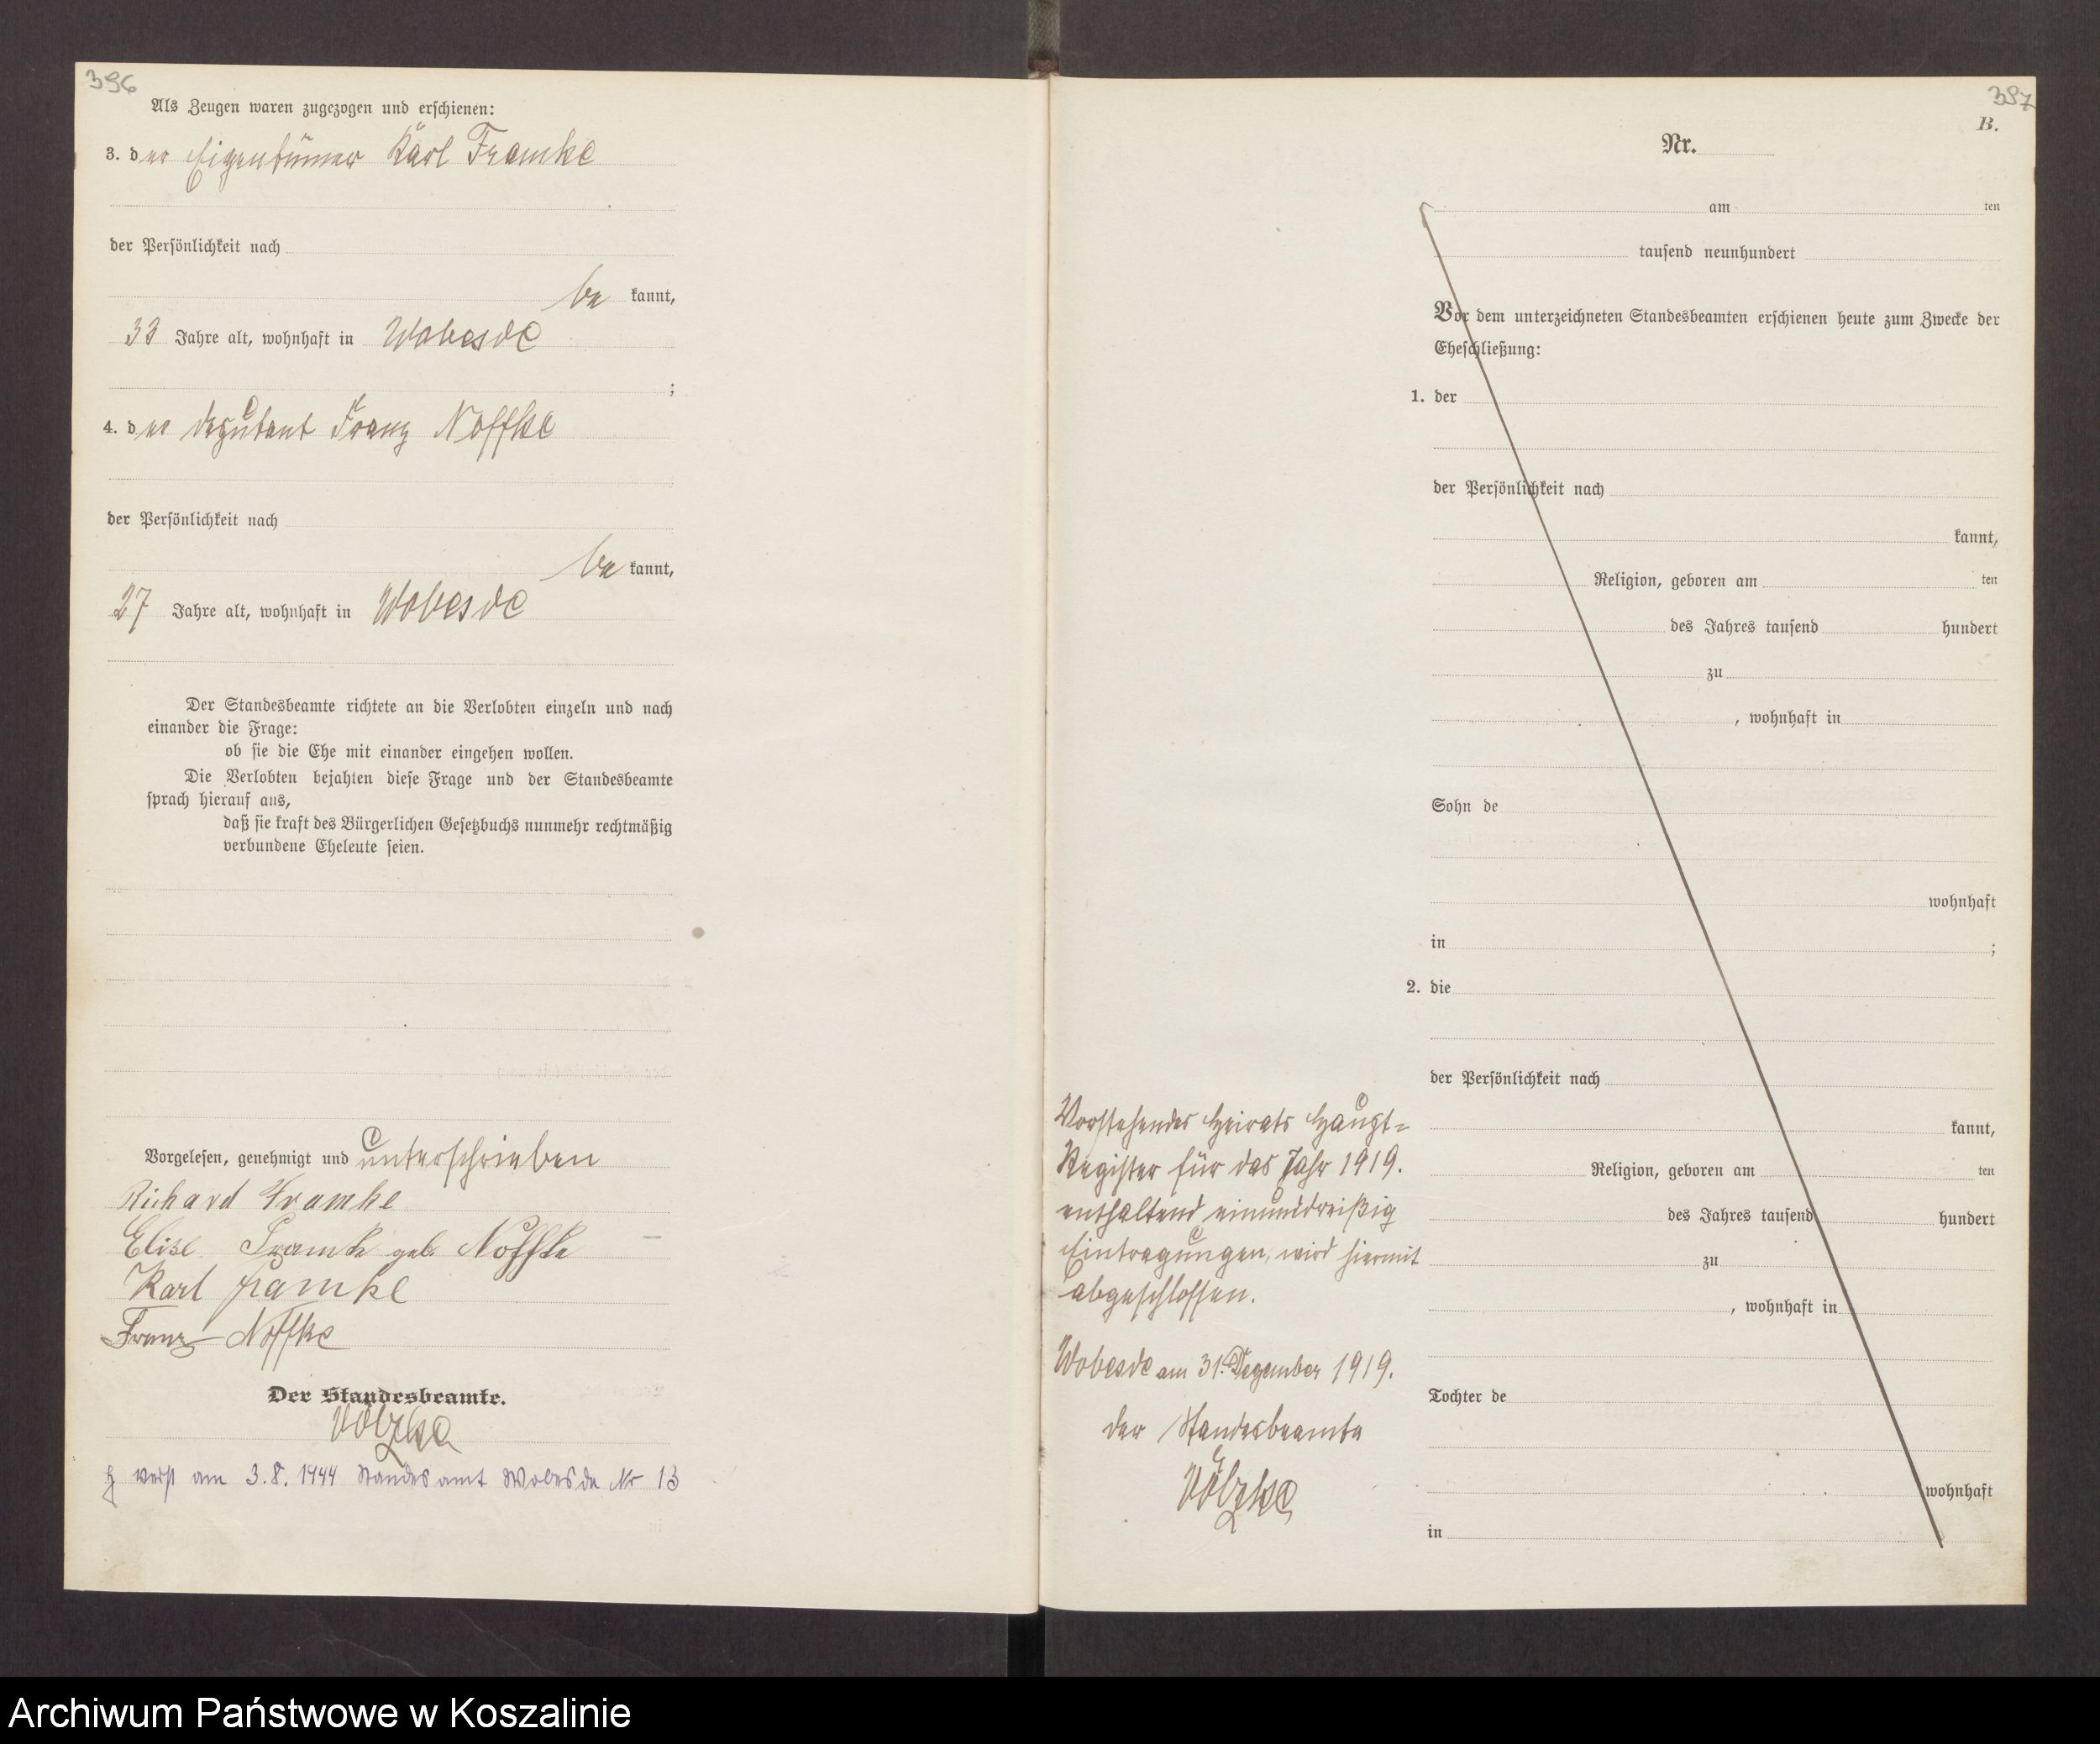 396
Als Zeugen waren zugezogen und erschienen:
3. der Eigentümer Karl Framke
der Persönlichkeit nach
be kannt,
33 Jahre alt, wohnhaft in Wobesde
;
4. der Deputant Franz Noffke
der Persönlichkeit nach
be kannt,
27 Jahre alt, wohnhaft in Wobesde
Der Standesbeamte richtete an die Verlobten einzeln und nach
einander die Frage:
ob sie die Ehe mit einander eingehen wollen.
Die Verlobten bejahten diese Frage und der Standesbeamte
sprach hierauf aus,
daß sie kraft des Bürgerlichen Gesetzbuchs nunmehr rechtmäßig
verbundene Eheleute seien.
Vorgelesen, genehmigt und unterschrieben
Richard Framke
Elise Framke geb. Noffke
Karl Framke
Franz Noffke
Der Standesbeamte.
Völzke
verst am 3.8.1944 Standesamt Wobesde Nr 13
397
B.
Nr.
am ten
tausend neunhundert
Vor dem unterzeichneten Standesbeamten erschienen heute zum Zwecke der
Eheschließung:
1. der
der Persönlichkeit nach
kannt,
Religion, geboren am ten
des Jahres tausend hundert
zu
, wohnhaft in
Sohn de
wohnhaft
in ;
2. die
der Persönlichkeit nach
kannt,
Religion, geboren am ten
des Jahres tausend hundert
zu
, wohnhaft in
Tochter de
wohnhaft
in
Vorstehendes Heirats Haupt-
Register für das Jahr 1919.
enthaltend einunddreißig
Eintragungen, wird hiermit
abgeschlossen.
Wobesde am 31. Dezember 1919.
Der Standesbeamte
Völzke
Archiwum Państwowe w Koszalinie